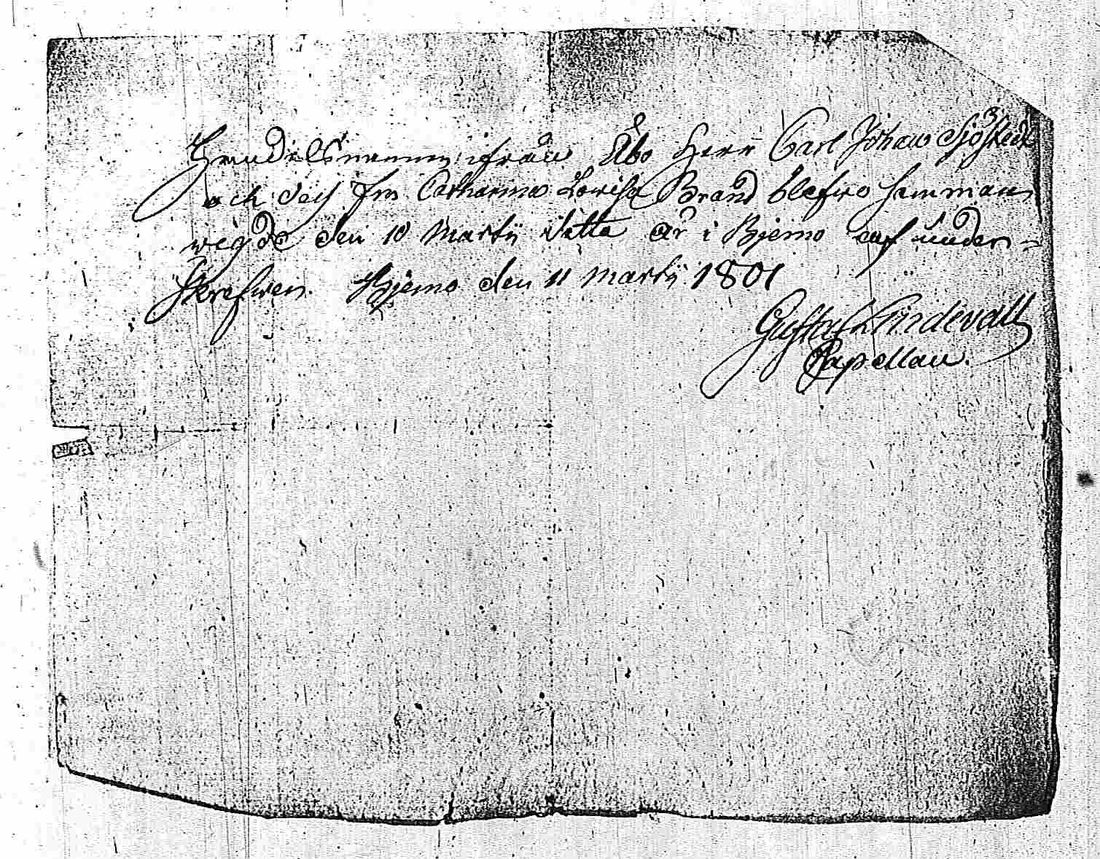 Handelsmannen ifrån Åbo Herr Carl Johan Sjöstedt
och dess fru Catharina Lovisa Brand blefvo samman
wigde den 10 Martij detta År i Bjerno af under-
skrefwen. Bjerno den 11 Martij 1801
Gustaf Lindevall
Capellan.